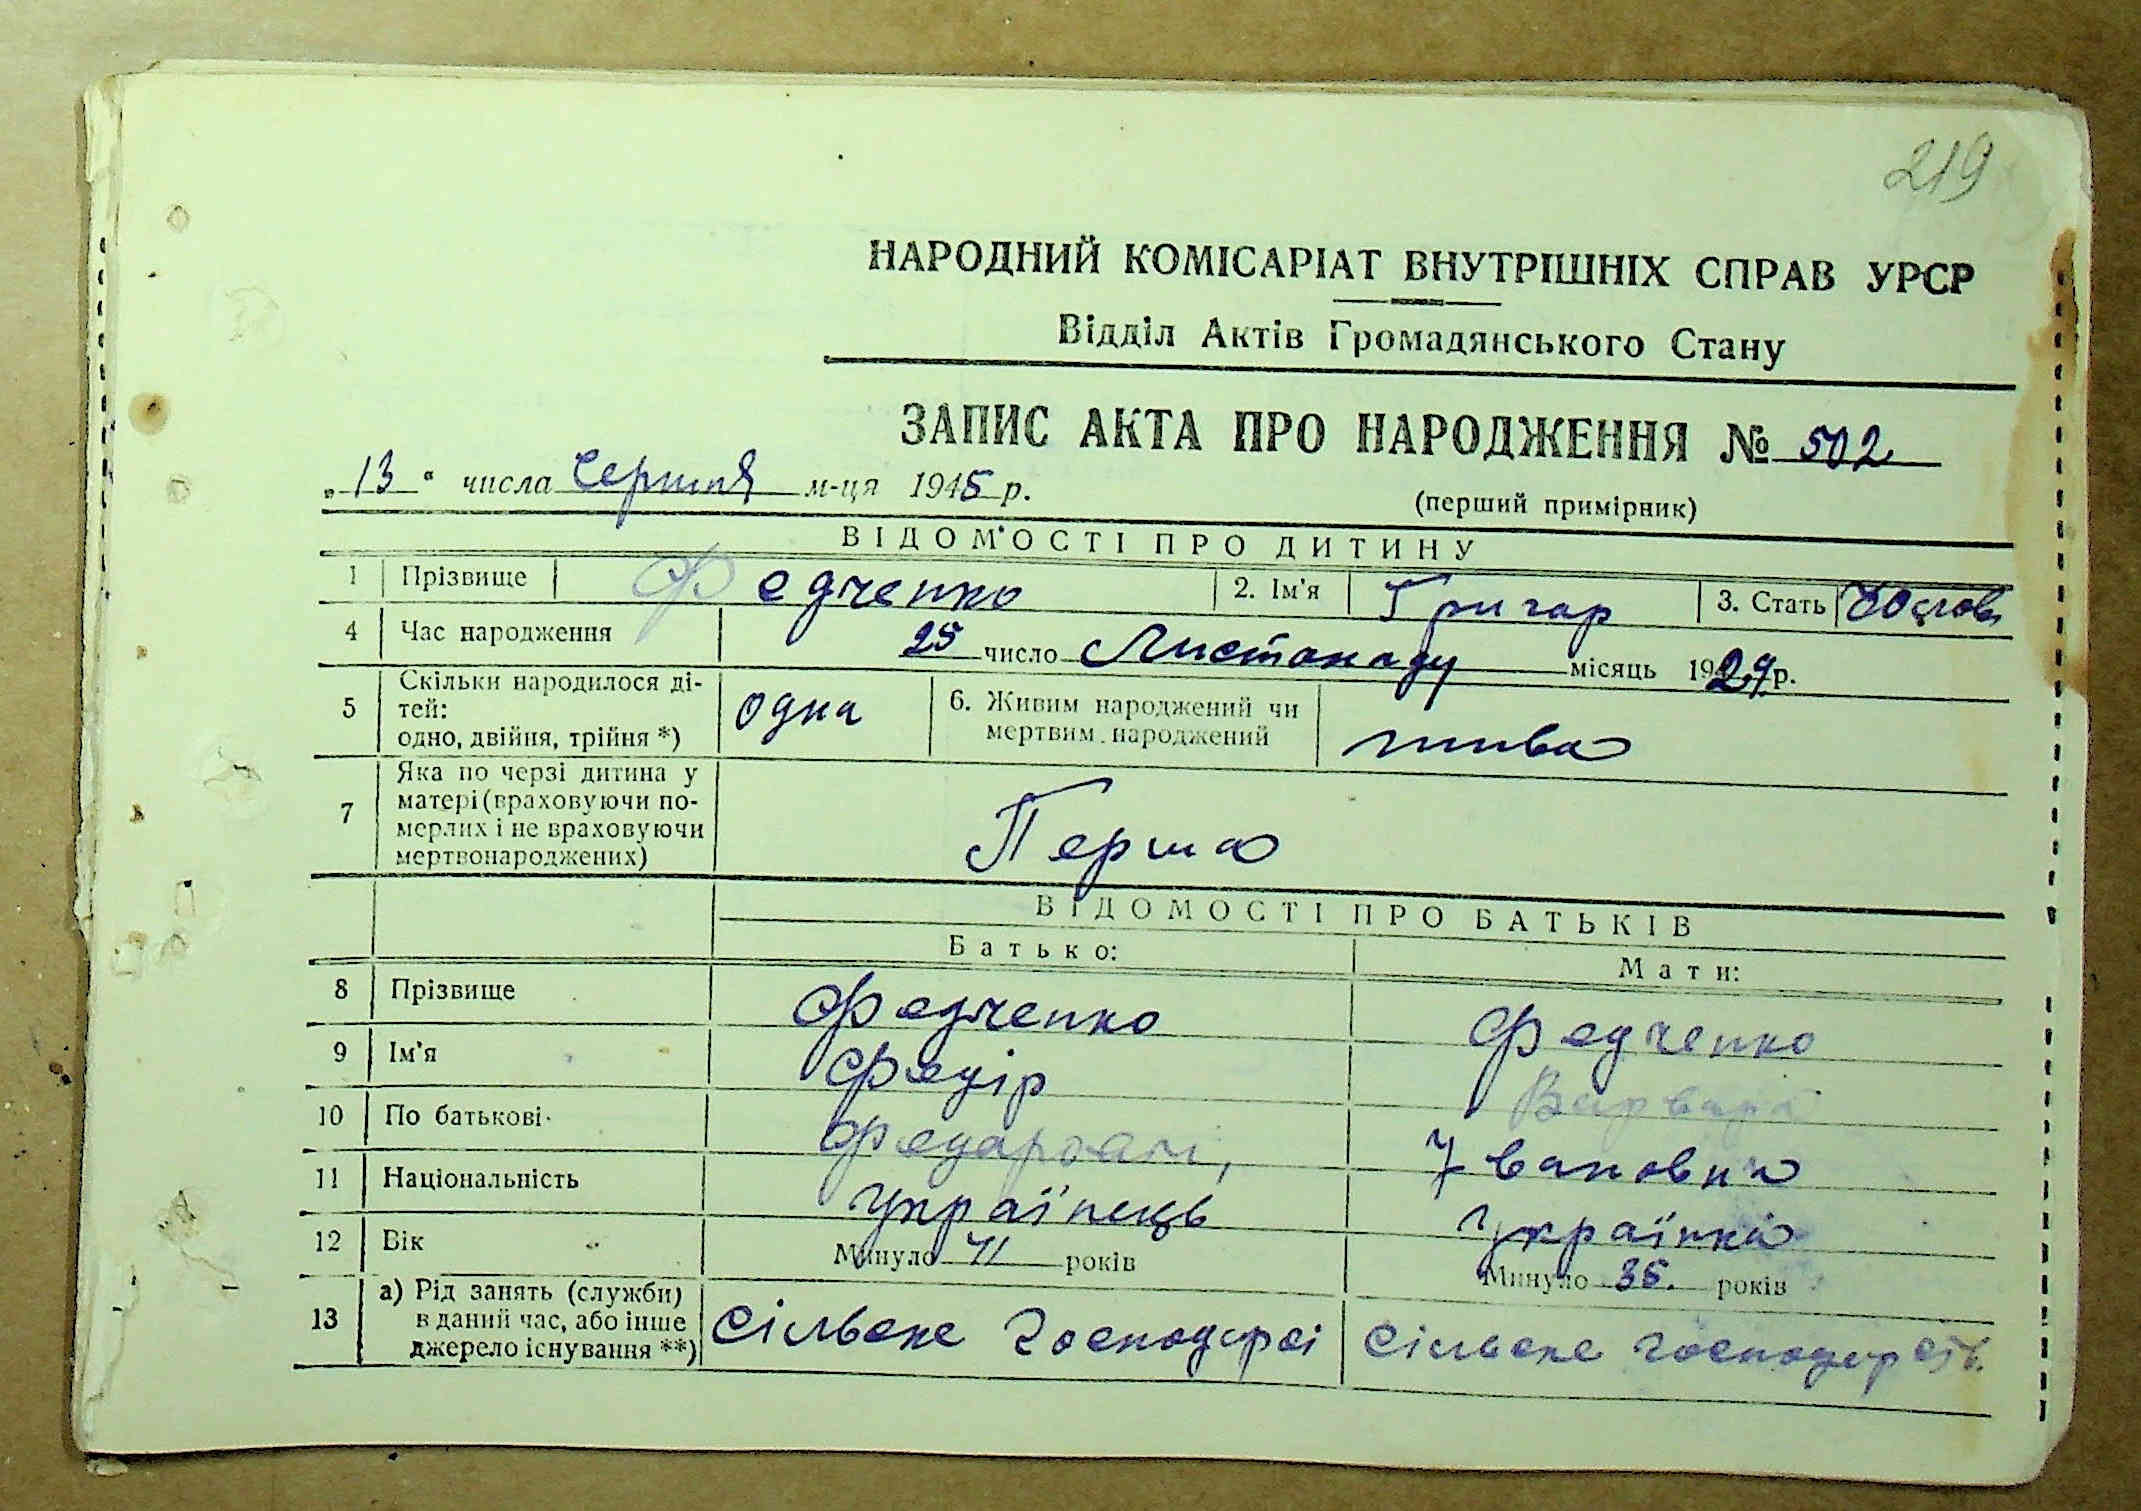 219
НАРОДНИЙ КОМІСАРІАТ ВНУТРІШНІХ СПРАВ УРСР
Відділ Актів Громадянського Стану
ЗАПИС АКТА ПРО НАРОДЖЕННЯ № 502
„13“ числа Серпня м-ця 1945 р.
(перший примірник)
ВІДОМОСТІ ПРО ДИТИНУ
1 Прізвище Федченко 2. Ім'я Григор 3. Стать
4 Час народження 25 число Листопаду місяць 1929 р.
5 Скільки народилося ді-
тей:
одно, двійня, трійня *) одна 6. Живим народжений чи
мертвим народжений жива
7 Яка по черзі дитина у
матері (враховуючи по-
мерлих і не враховуючи
мертвонароджених) Перша
ВІДОМОСТІ ПРО БАТЬКІВ
Батько: Мати:
8 Прізвище Федченко Федченко
9 Ім'я Федір Варвара
10 По батькові Івановна
11 Національність Українець Українка
12 Вік Минуло 41 років Минуло 35. років
13 а) Рід занять (служби)
в даний час, або інше
джерело існування **) Сільське Сільське